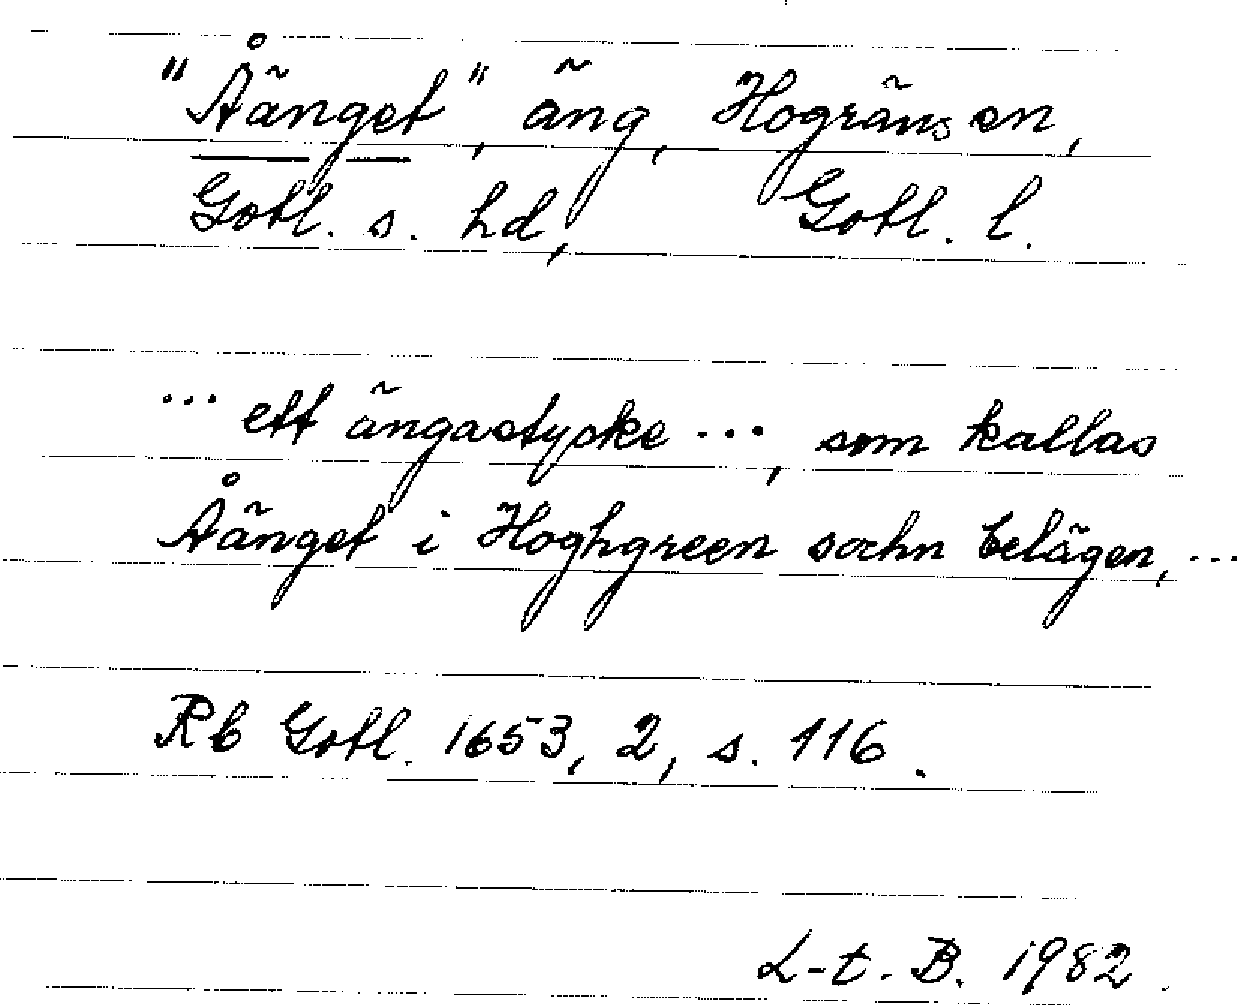 "Åänget", äng, Hogräns sn,
Gotl. s. hd, Gotl. l.
... ett ängastycke ..., som kallas
Åänget i Hoghgreen sochn belägen, ...
Rb Gotl. 1653, 2, s. 116.
L-t. B. 1982.